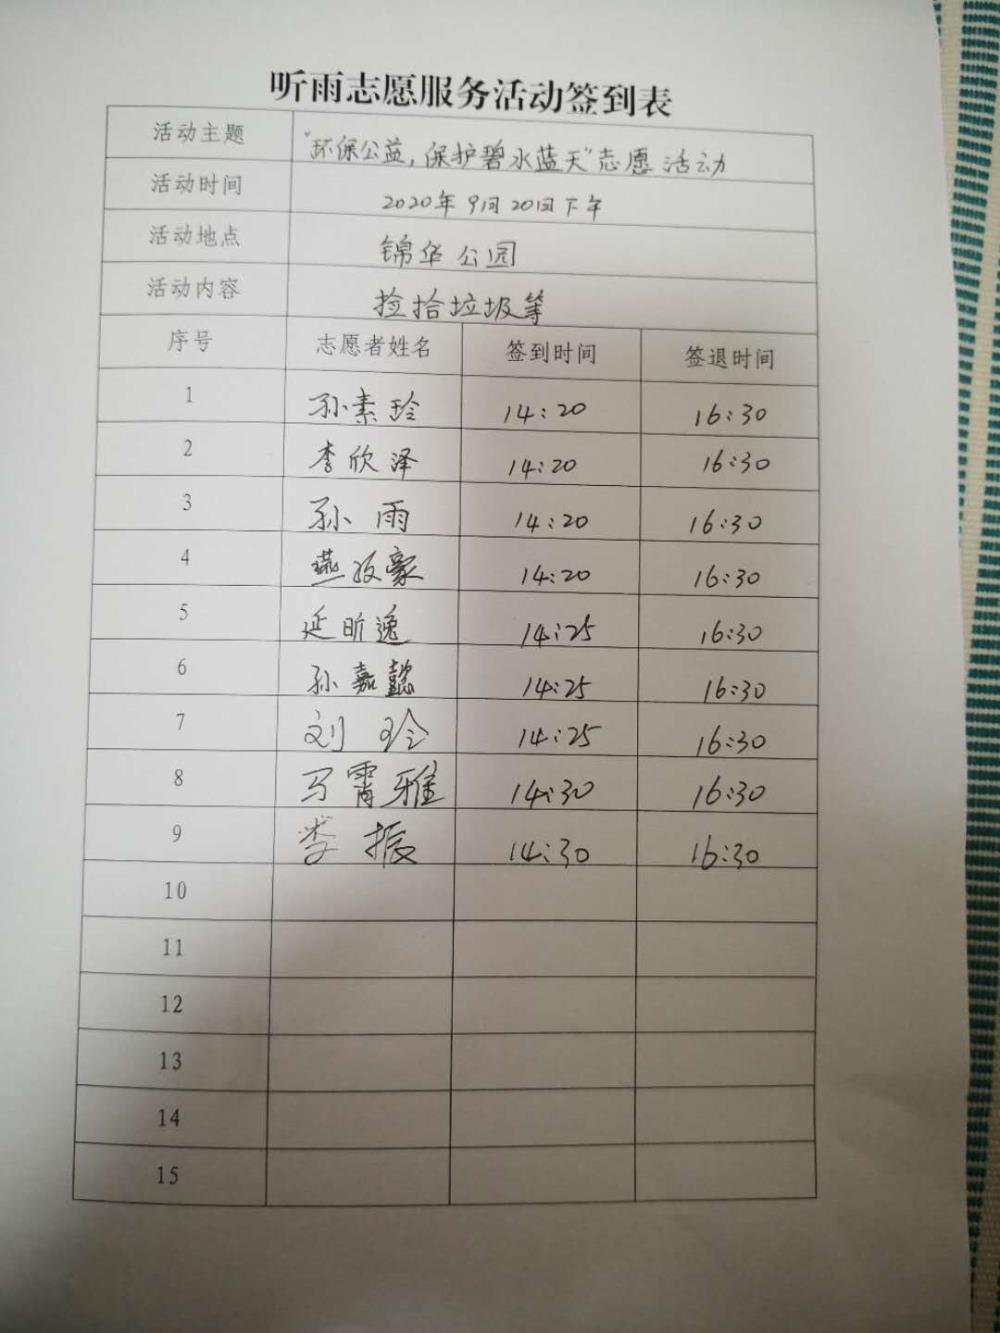 听雨志愿服务活动签到表
活动主题 "环保公益,保护碧水蓝天"志愿活动
活动时间 2020年9月20日下午
活动地点 锦华公园
活动内容 捡拾垃圾等
序号 志愿者姓名 签到时间 签退时间
1 孙素玲 14:20 16:30
2 李欣泽 14:20 16:30
3 孙雨 14:20 16:30
4 燕 豪 14:20 16:30
5 延昕逸 14:25 16:30
6 孙嘉懿 14:25 16:30
7 刘玲 14:25 16:30
8 马霄雅 14:30 16:30
9 李振 14:30 16:30
10
11
12
13
14
15